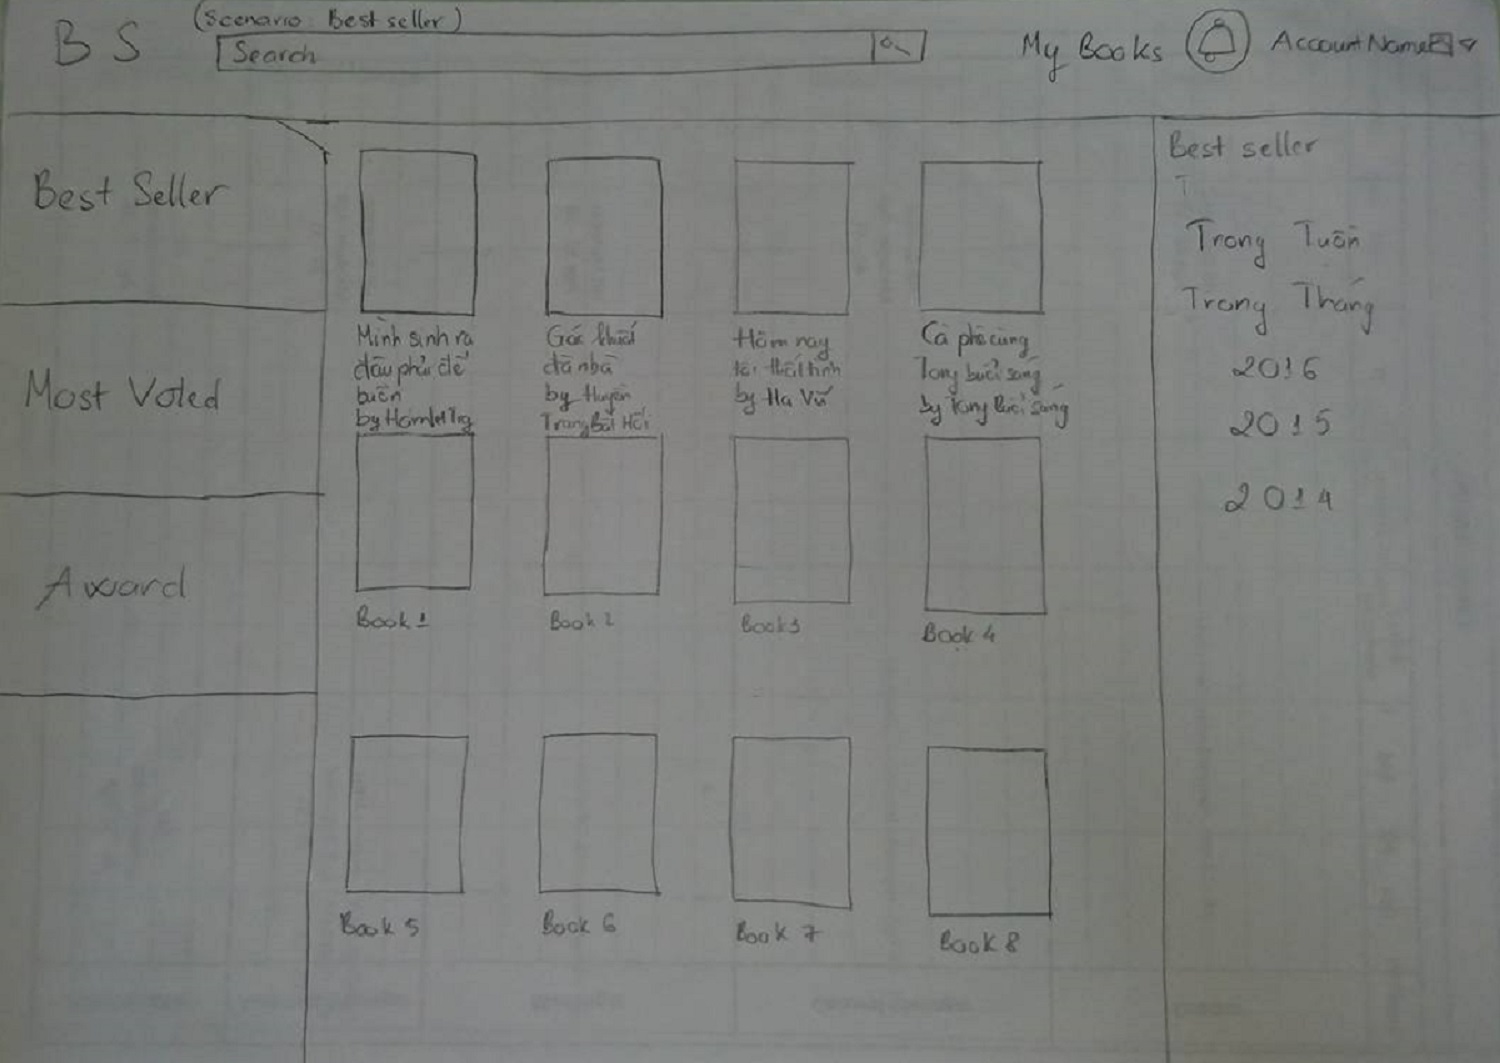 (Scenario: Best seller)
B S
Search
My Books
Account Name
Best Seller
Most Voted
Award
Mình sinh ra
đâu phải để
buồn
by Hamlet Trg
Gác khuất
đá nhà
by Huyền
Trang Bất Hối
Hôm nay
tôi thất tình
by Hạ Vũ
Cà phê cùng
Tony buổi sáng
by Tony Buổi Sáng
Book 1
Book 2
Book 3
Book 4
Book 5
Book 6
Book 7
Book 8
Best seller
T
Trong Tuần
Trong Tháng
2016
2015
2014